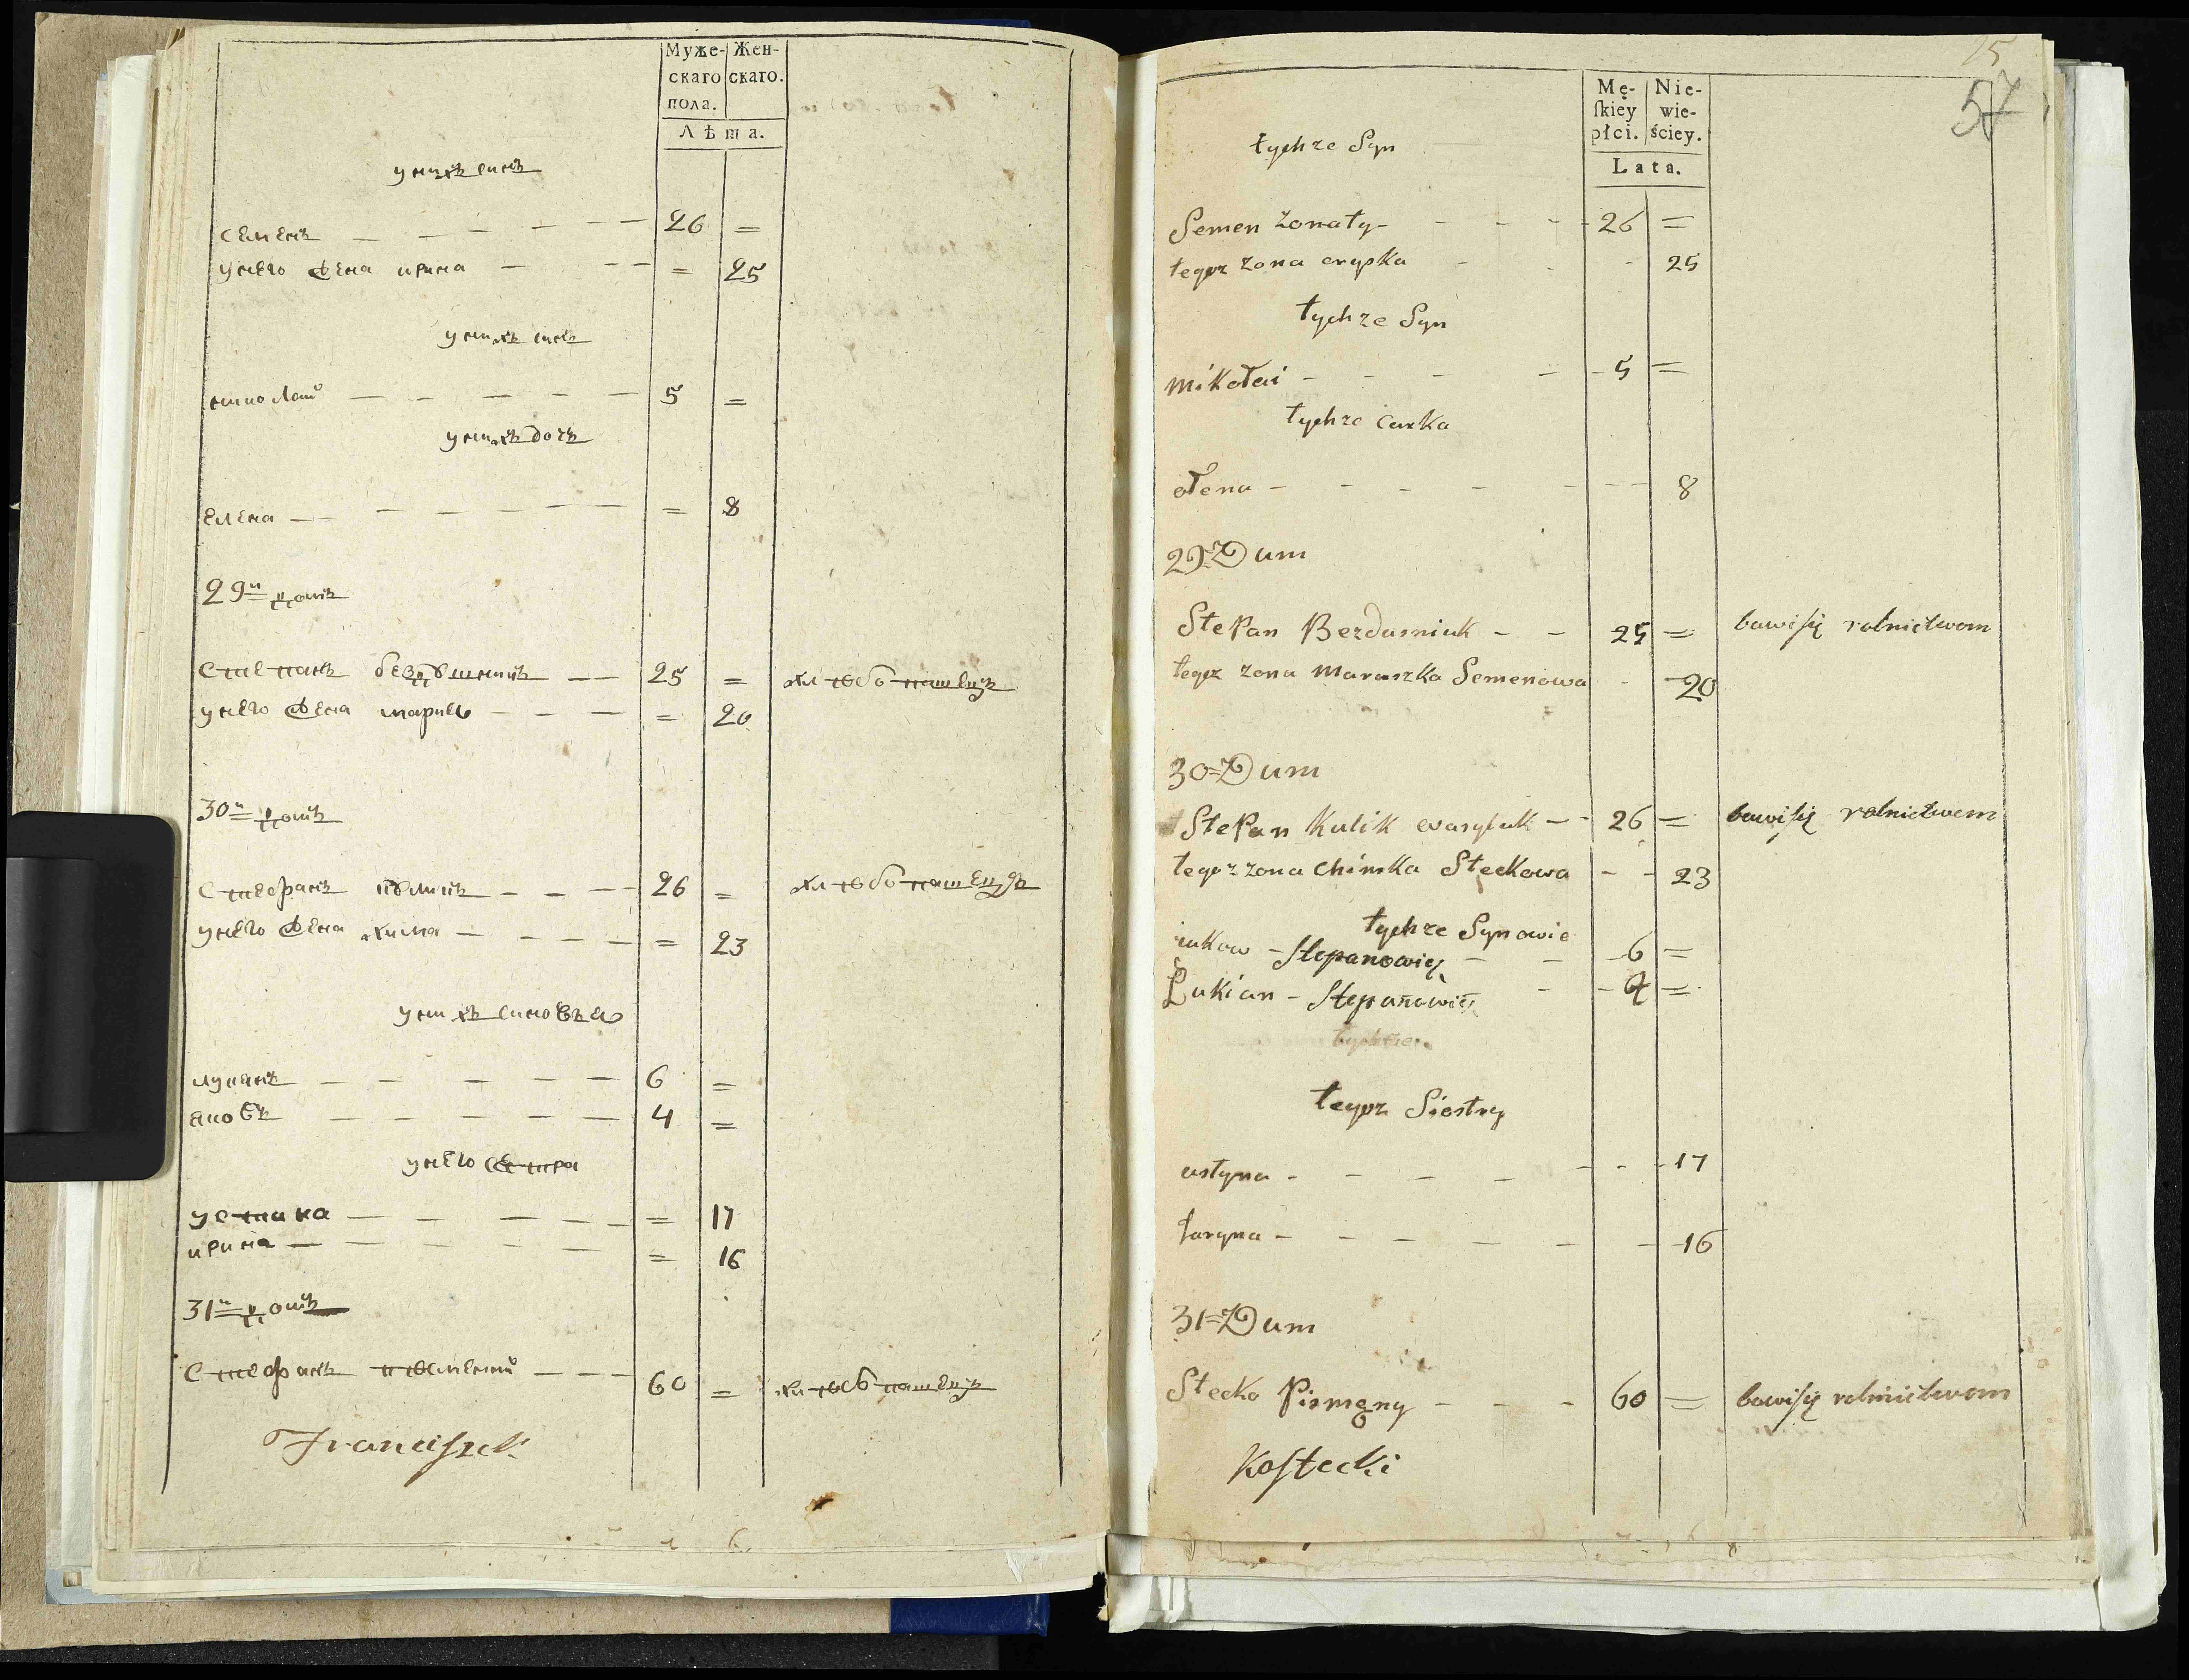 Муже- Жен-
скаго скаго.
пола.
Лѣта.
у нихъ синъ
семенъ — — — — 26 =
у него жена ирина — — — = 25
у нихъ синъ
николай — — — — — 5 =
у нихъ дочъ
елена — — — — — — = 8
29й домъ
степанъ — — 25 = хлебопашецъ
у него жена — — — = 20
30й домъ
стефанъ куликъ — — — 26 = хлебопашецъ
у него жена хима — — — — — = 23
у нихъ синовья
лукянъ — — — — — 6 =
яковъ — — — — — 4 =
у него сестра
устина — — — — — = 17
ирина — — — — — — = 16
31й домъ
стефанъ писменнй — — — 60 = хлебопашецъ
Franciszek
15
57
Mę- Nie-
ſkiey wie-
płci. ściey.
Lata.
tychze Syn
Semen zonaty - - - - 26 =
tegoz zona arypka - - - 25
tychze Syn
mikołai - - - - - 5 =
tychze Curka
ołena - - - - - - - 8
29=Dum
Stepan Bezdusniuk - - 25 = bawi ſię rolnictwom
tegoz zona Maruszka Semenowa - 20
30=Dum
Stepan Kulik wasyluk - - 26 = bawi ſię rolnictwem
tegoz zona Chimka Steckowa - - 23
tychze Synowie
iakow - Stepanowicz - - 6 =
Łukian - Stepanowicz - - 4 =
tychze
tegoz Siostry
ustyna - - - - - - - 17
Iaryna - - - - - - 16
31=Dum
Stecko Pismęny - - - 60 = bawi ſię rolnictwom
Koſtecki